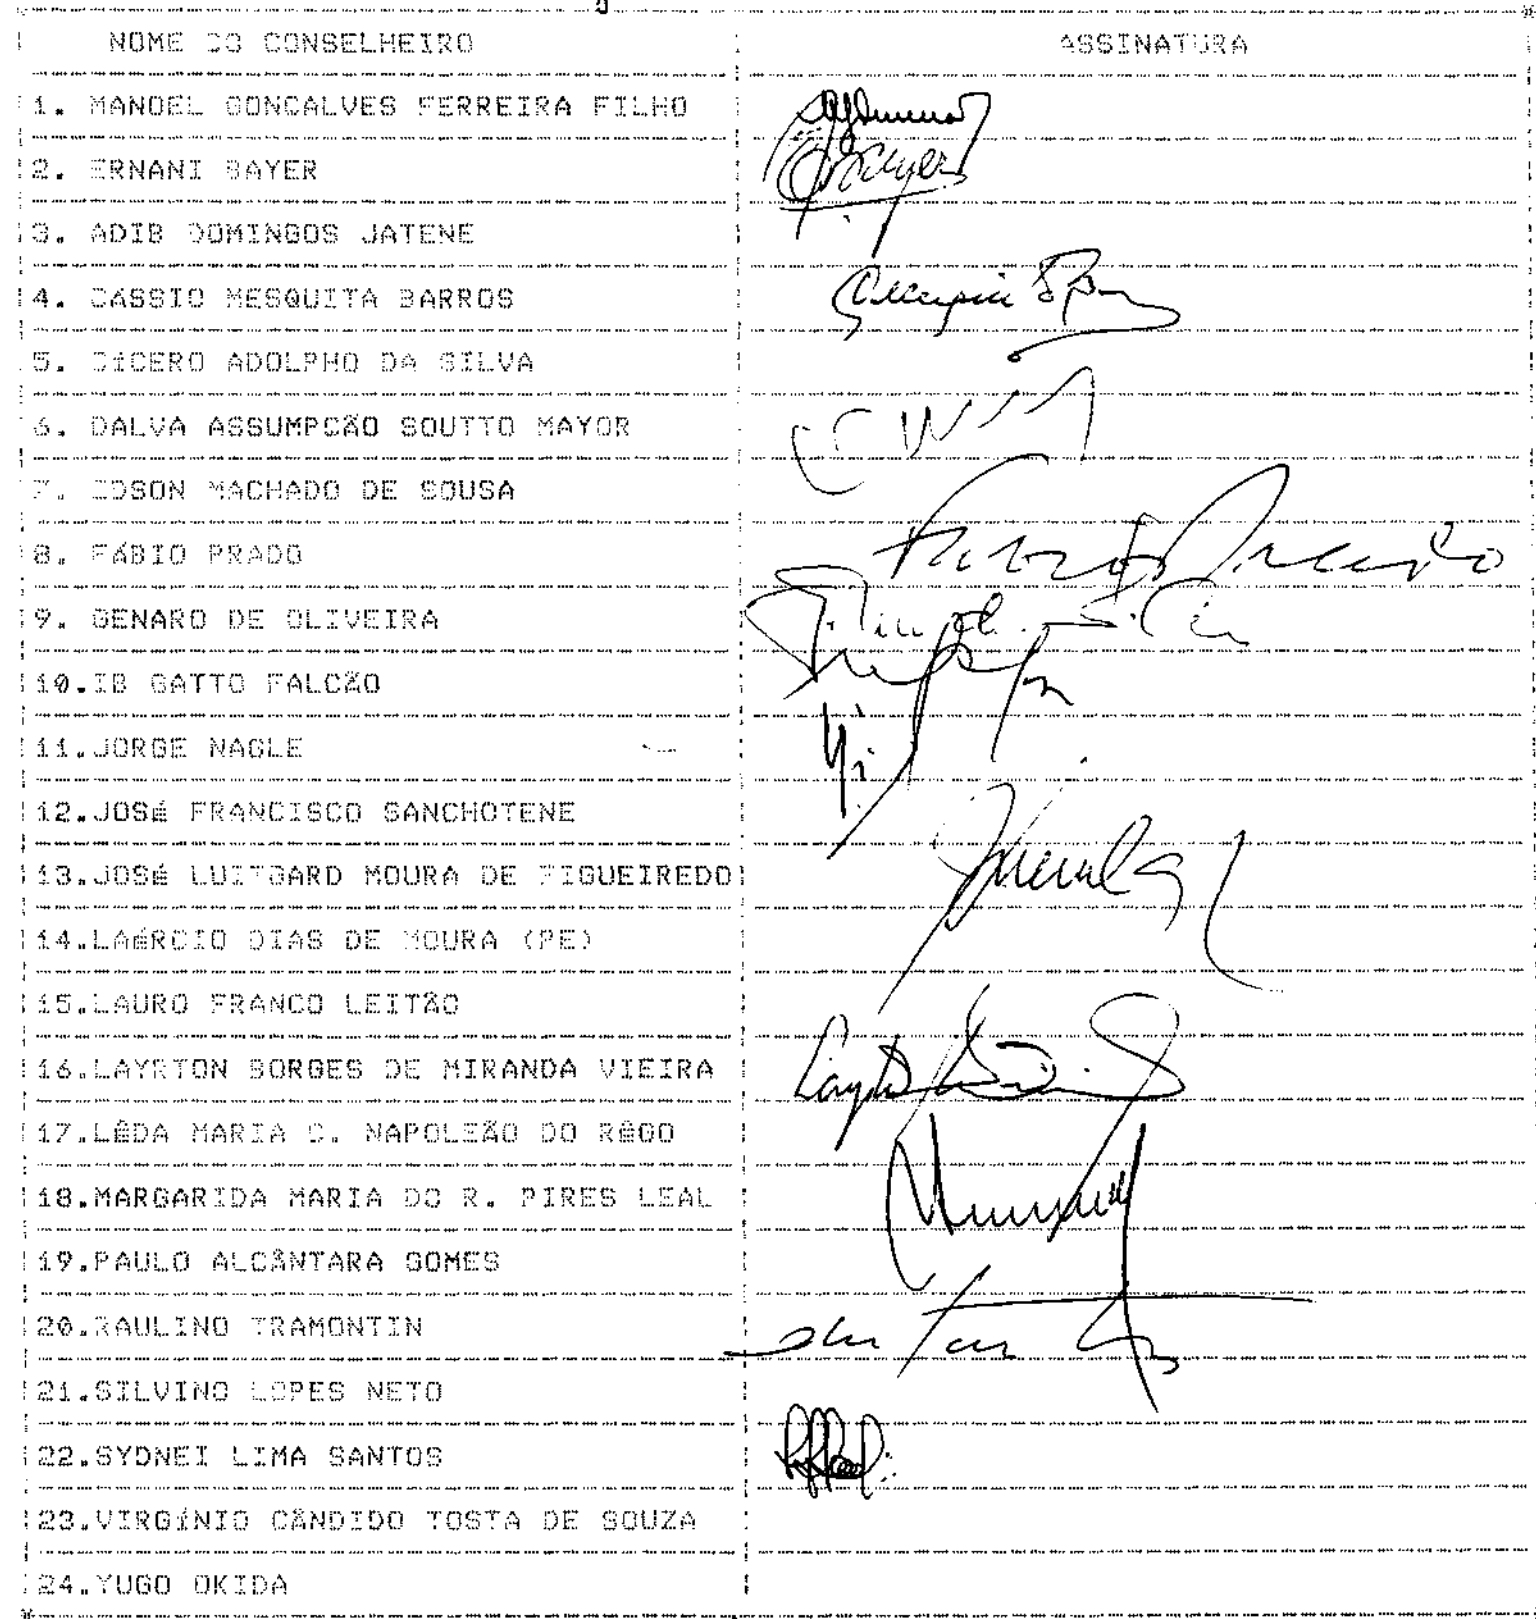 NOME DO CONSELHEIRO ASSINATURA
1. MANOEL GONCALVES FERREIRA FILHO
2. ERNANI BAYER
3. ADIB DOMINGOS JATENE
4. CÁSSIO MESQUITA BARROS
5. CÍCERO ADOLPHO DA SILVA
6. DALVA ASSUMPCÃO SOUTTO MAYOR
7. EDSON MACHADO DE SOUSA
8. FÁBIO PRADO
9. GENARO DE OLIVEIRA
10.IB GATTO FALCÃO
11.JORGE NAGLE
12.JOSÉ FRANCISCO SANCHOTENE
13.JOSÉ LUITGARD MOURA DE FIGUEIREDO
14.LAÉRCIO DIAS DE MOURA (PE)
15.LAURO FRANCO LEITÃO
16.LAYRTON BORGES DE MIRANDA VIEIRA
17.LÊDA MARIA C. NAPOLEÃO DO RÊGO
18.MARGARIDA MARIA DO R. PIRES LEAL
19.PAULO ALCÂNTARA GOMES
20.RAULINO TRAMONTIN
21.SILVINO LOPES NETO
22.SYDNEI LIMA SANTOS
23.VIRGÍNIO CÂNDIDO TOSTA DE SOUZA
24.YUGO OKIDA